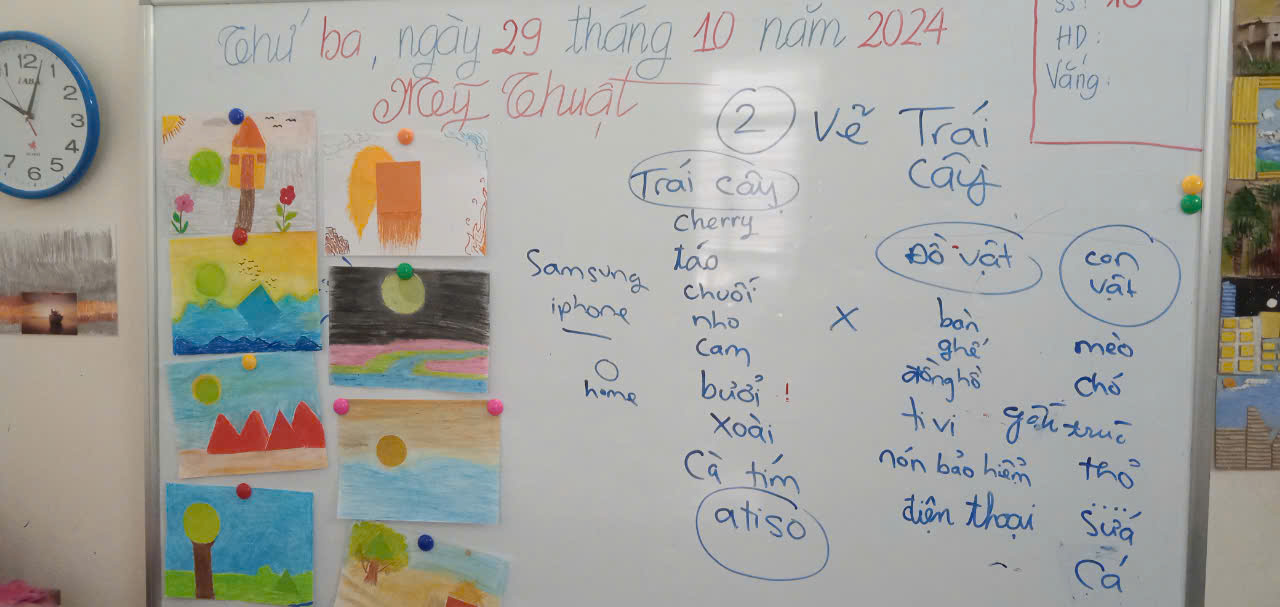 Thứ ba, ngày 29 tháng 10 năm 2024
Mỹ Thuật
SS: 10
HD:
Vắng:
2 Vẽ Trái
cây
Trái cây
cherry
táo
chuối
nho
cam
bưởi !
xoài
Cà tím
atisô
Samsung
iphone
home
X
Đồ vật
bàn
ghế
đồng hồ
ti vi
nón bảo hiểm
điện thoại
con
vật
mèo
chó
gấu trúc
thỏ
sứa
Cá
12
1
2
3
4
5
6
7
11